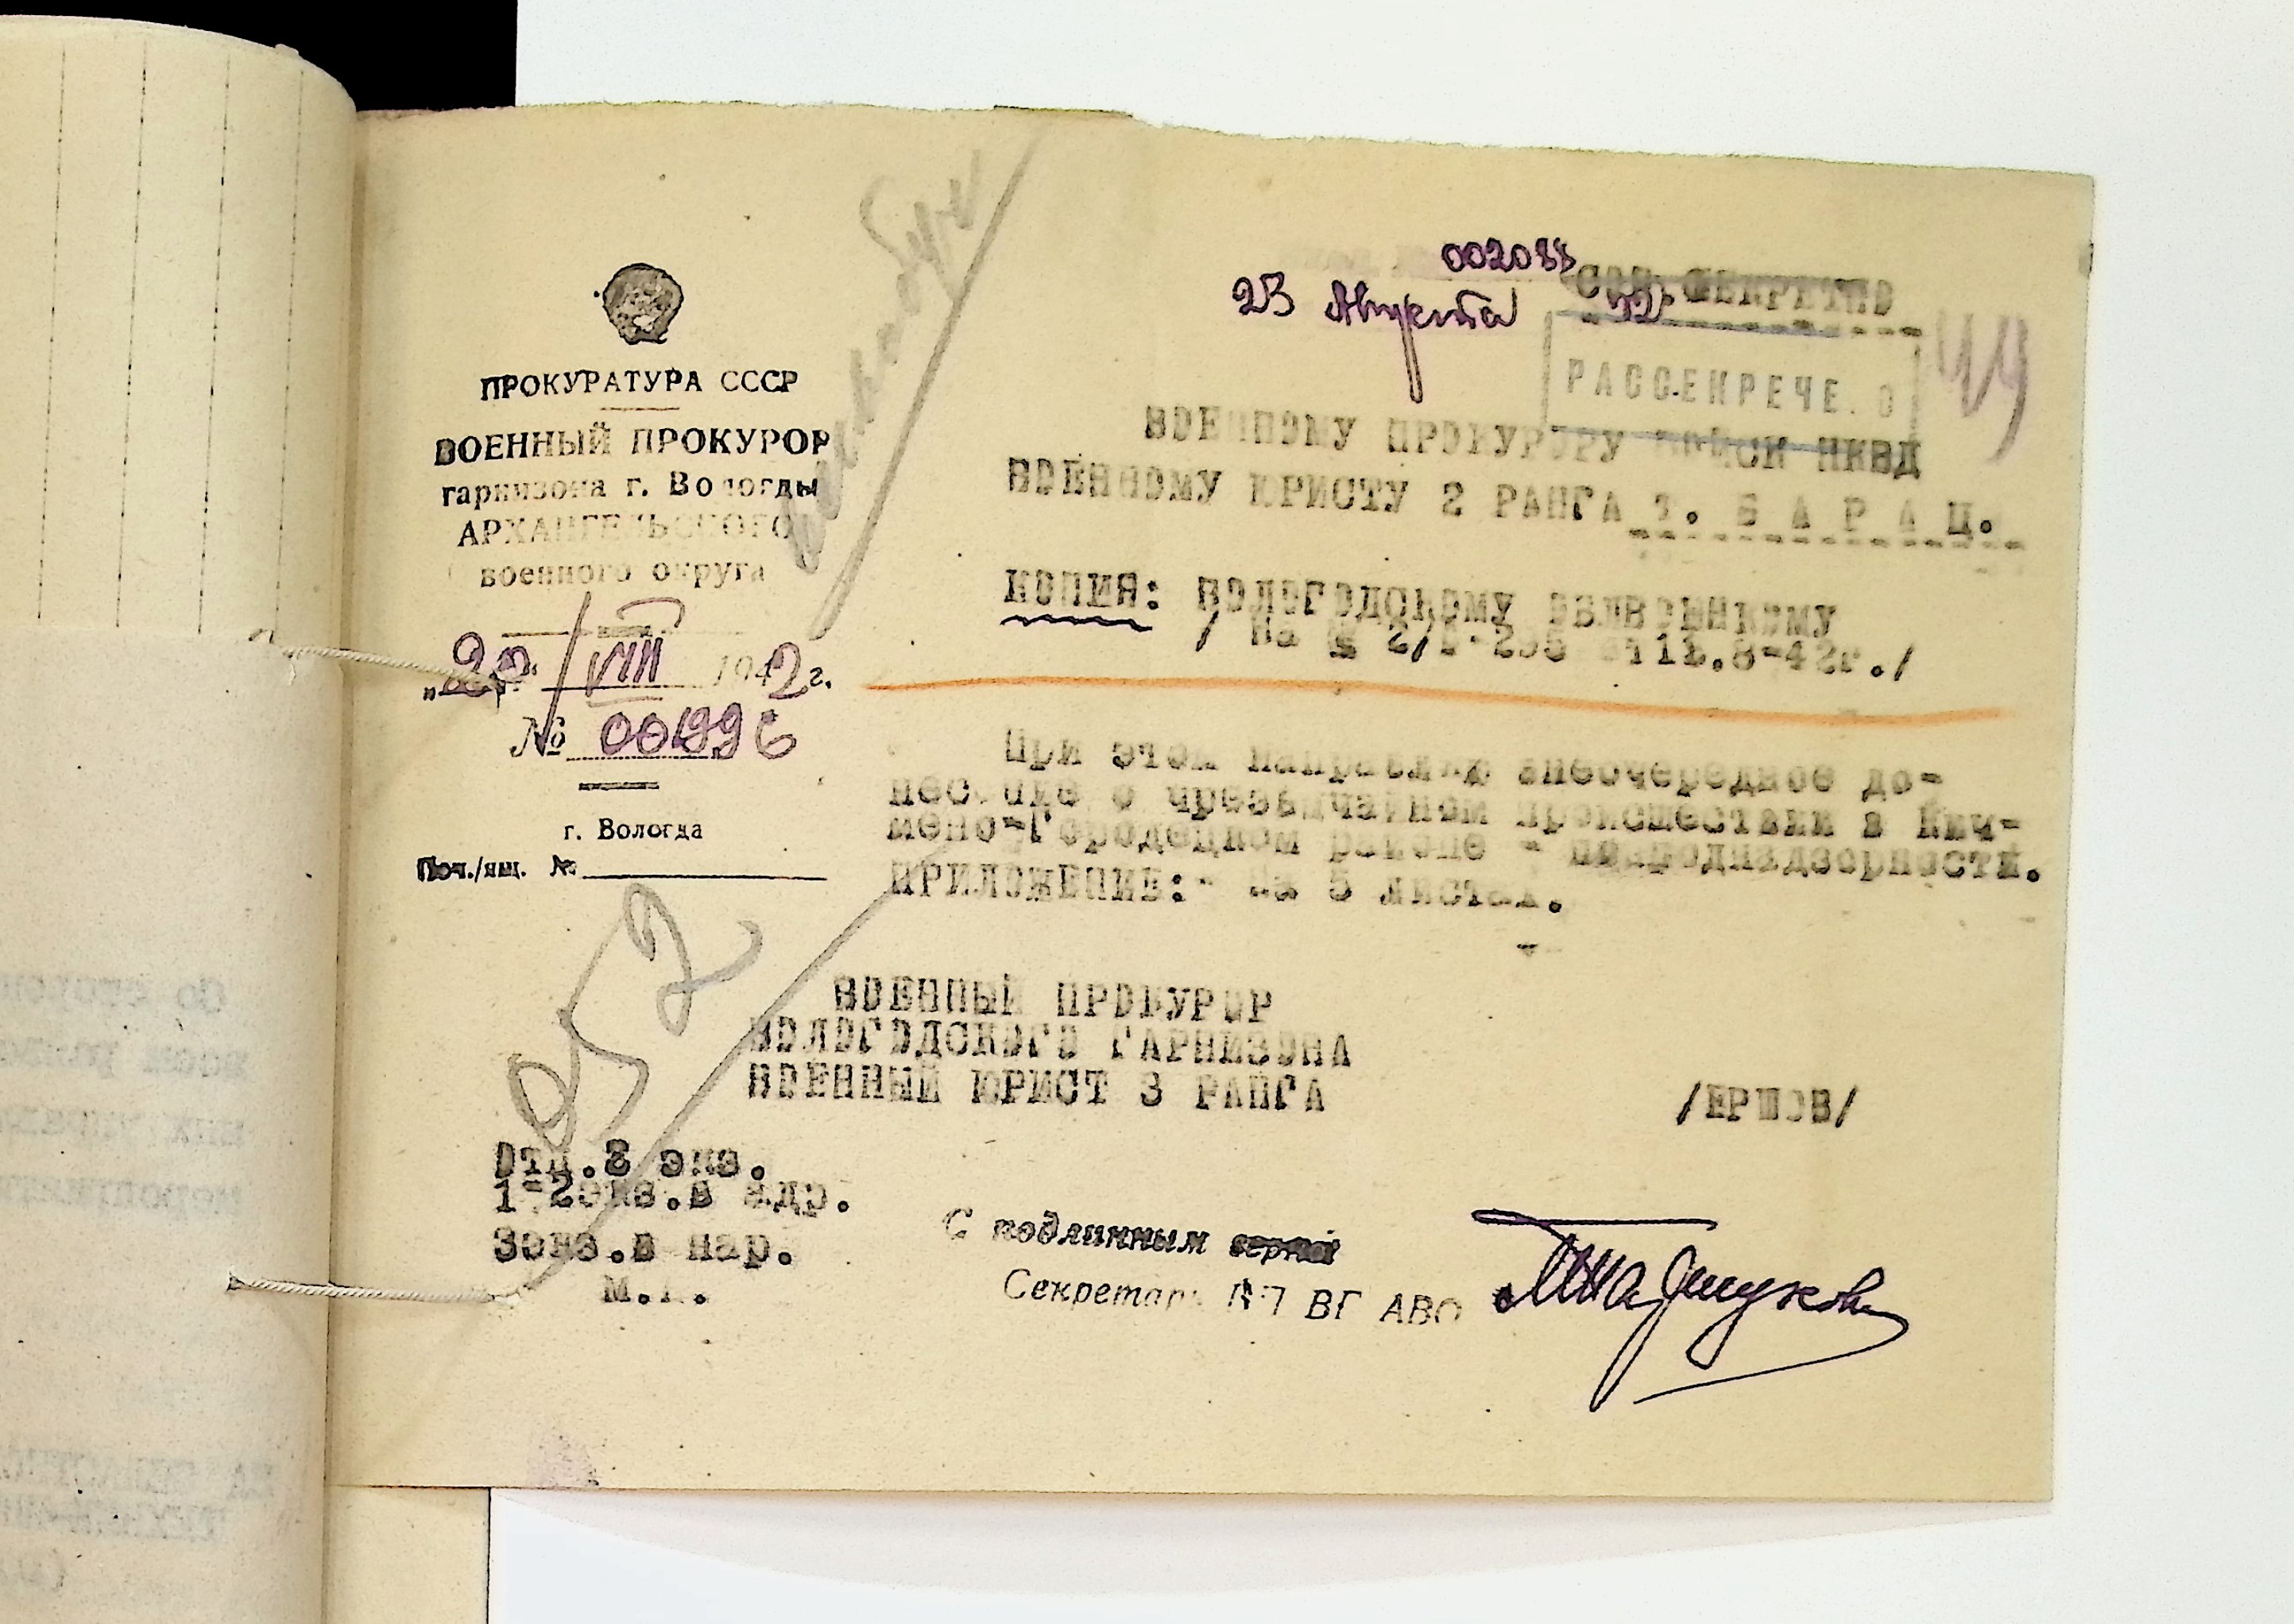 ПРОКУРАТУРА СССР
ВОЕННЫЙ ПРОКУРОР
гарнизона г. Вологды
АРХАНГЕЛЬСКОГО
военного округа
"20" VIII 1942 г.
№ 001996
г. Вологда
Поч./ящ. №
002088
23 Августа 42
СОВ. СЕКРЕТНО
РАССЕКРЕЧЕ О
49
ВОЕННОМУ ПРОКУРОРУ ВОЙСК НКВД
ВОЕННОМУ ЮРИСТУ 2 РАНГА Т. БАРАЦ.
КОПИЯ: ВОЛОГОДСКОМУ ОБЛВОЕНКОМУ
/ На № 2/ от 8-42г./
При этом направляю внеочередное до-
несение о чрезвычайном происшествии в Кич-
мено-Городецком районе - членовредительстве.
ПРИЛОЖЕНИЕ:- на 5 листах.
ВОЕННЫЙ ПРОКУРОР
ВОЛОГОДСКОГО ГАРНИЗОНА
ВОЕННЫЙ ЮРИСТ 3 РАНГА /ЕРШОВ/
Отп.3 экз.
1-2экз.в адр.
3экз.в нар.
С подлинным верно:
Секретарь ВП ВГ АВО